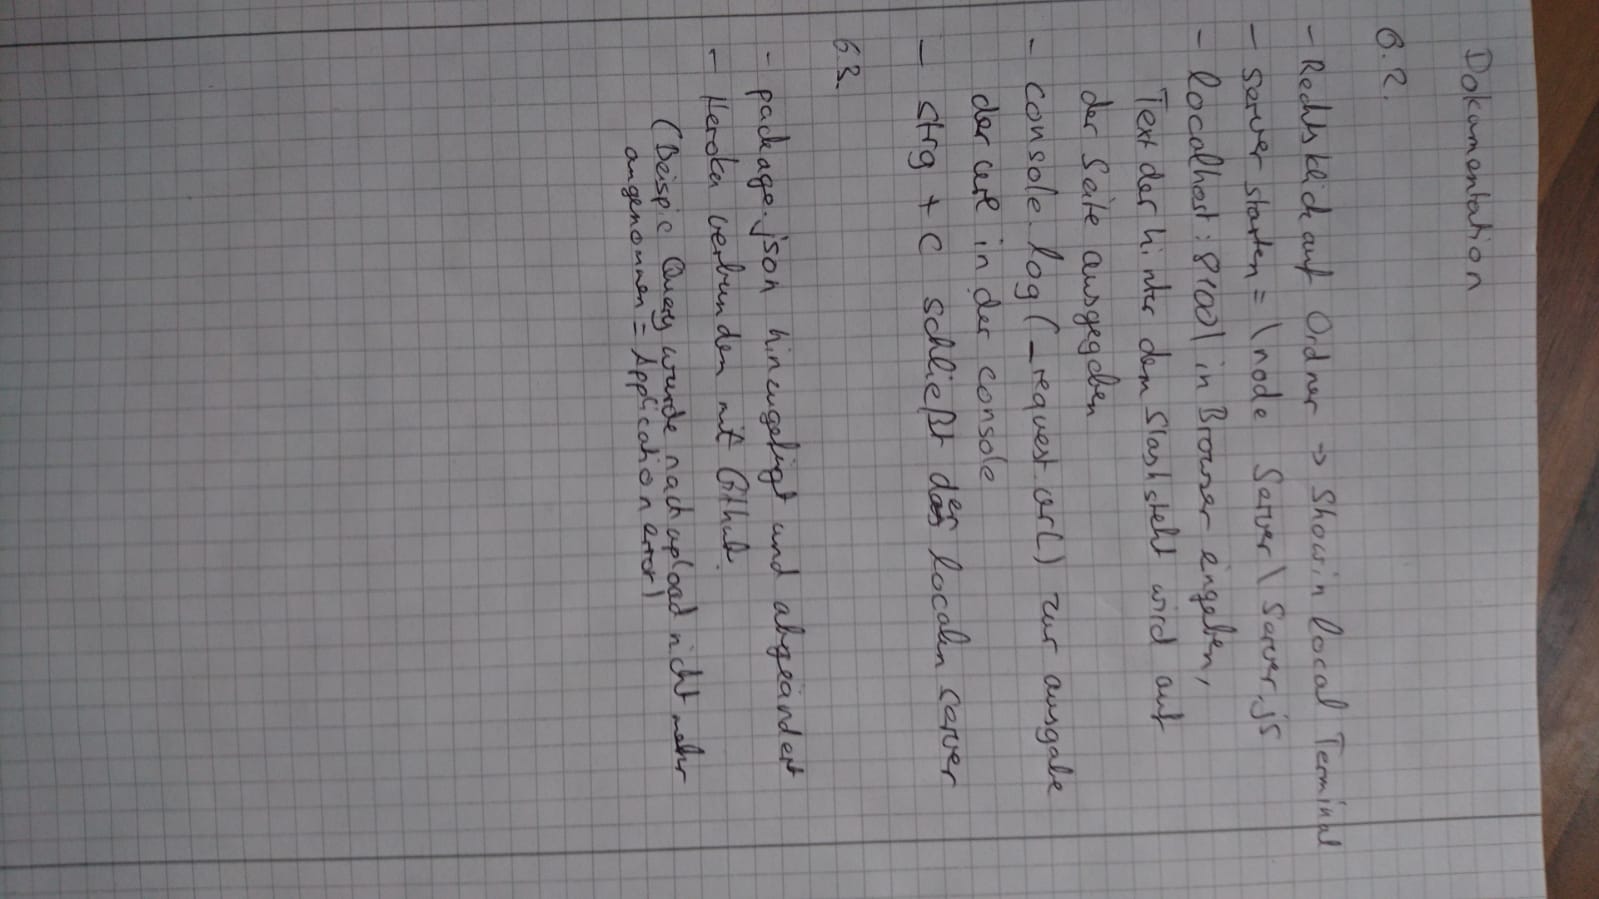 Dokumentation
6.2.
- Rechtsklick auf Ordner → Show in local Terminal
- Server starten = \node Server\Server.js
- localhost:8100\ in Browser eingeben,
Text der hinter dem Slash steht wird auf
der Seite ausgegeben
- console.log(_request.url) zur ausgabe
der url in der console
- strg + C schließt der localen server
6.3.
- package.json hinzugefügt und abgeändert
- Heroku verbunden mit Github.
(Beispie Query wurde nach upload nicht mehr
angenommen = Application error)